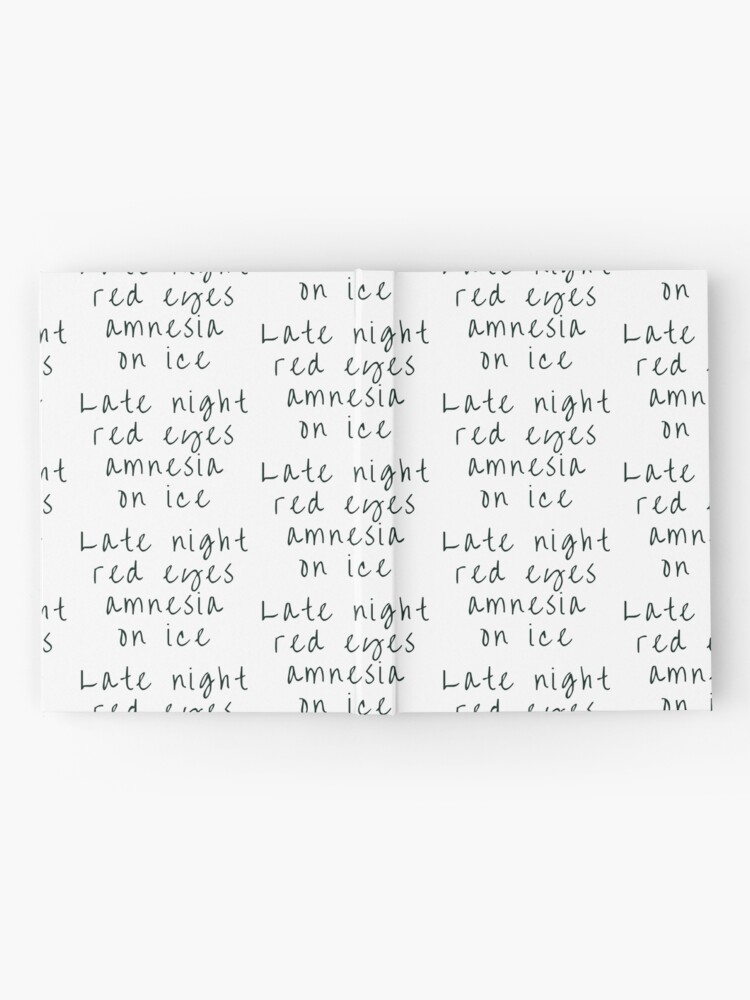 Late night
red eyes
amnesia
on ice
Late night
red eyes
amnesia
on ice
Late night
red eyes
amnesia
on ice
Late night
red eyes
on ice
Late night
red eyes
amnesia
on ice
Late night
red eyes
amnesia
on ice
Late night
red eyes
amnesia
on ice
Late night
red eyes
amnesia
on ice
Late night
red eyes
amnesia
on ice
Late night
red eyes
amnesia
on ice
Late night
red eyes
on
Late
red
amn
on
Late
red
amn
on
Late
red
amn
on